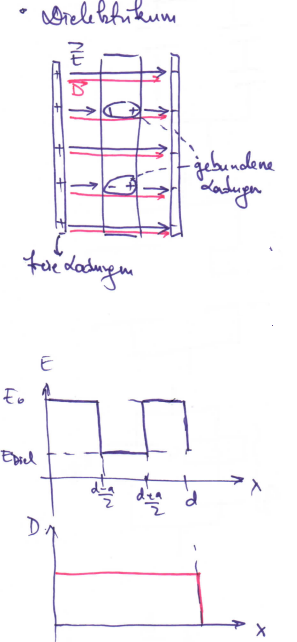 • Dielektrikum
E
D
+
+ - +
+
+ - +
+
gebundene
Ladungen
freie Ladungen
E
E₀
E_Diel
(d-a)/2 (d+a)/2 d
D
x